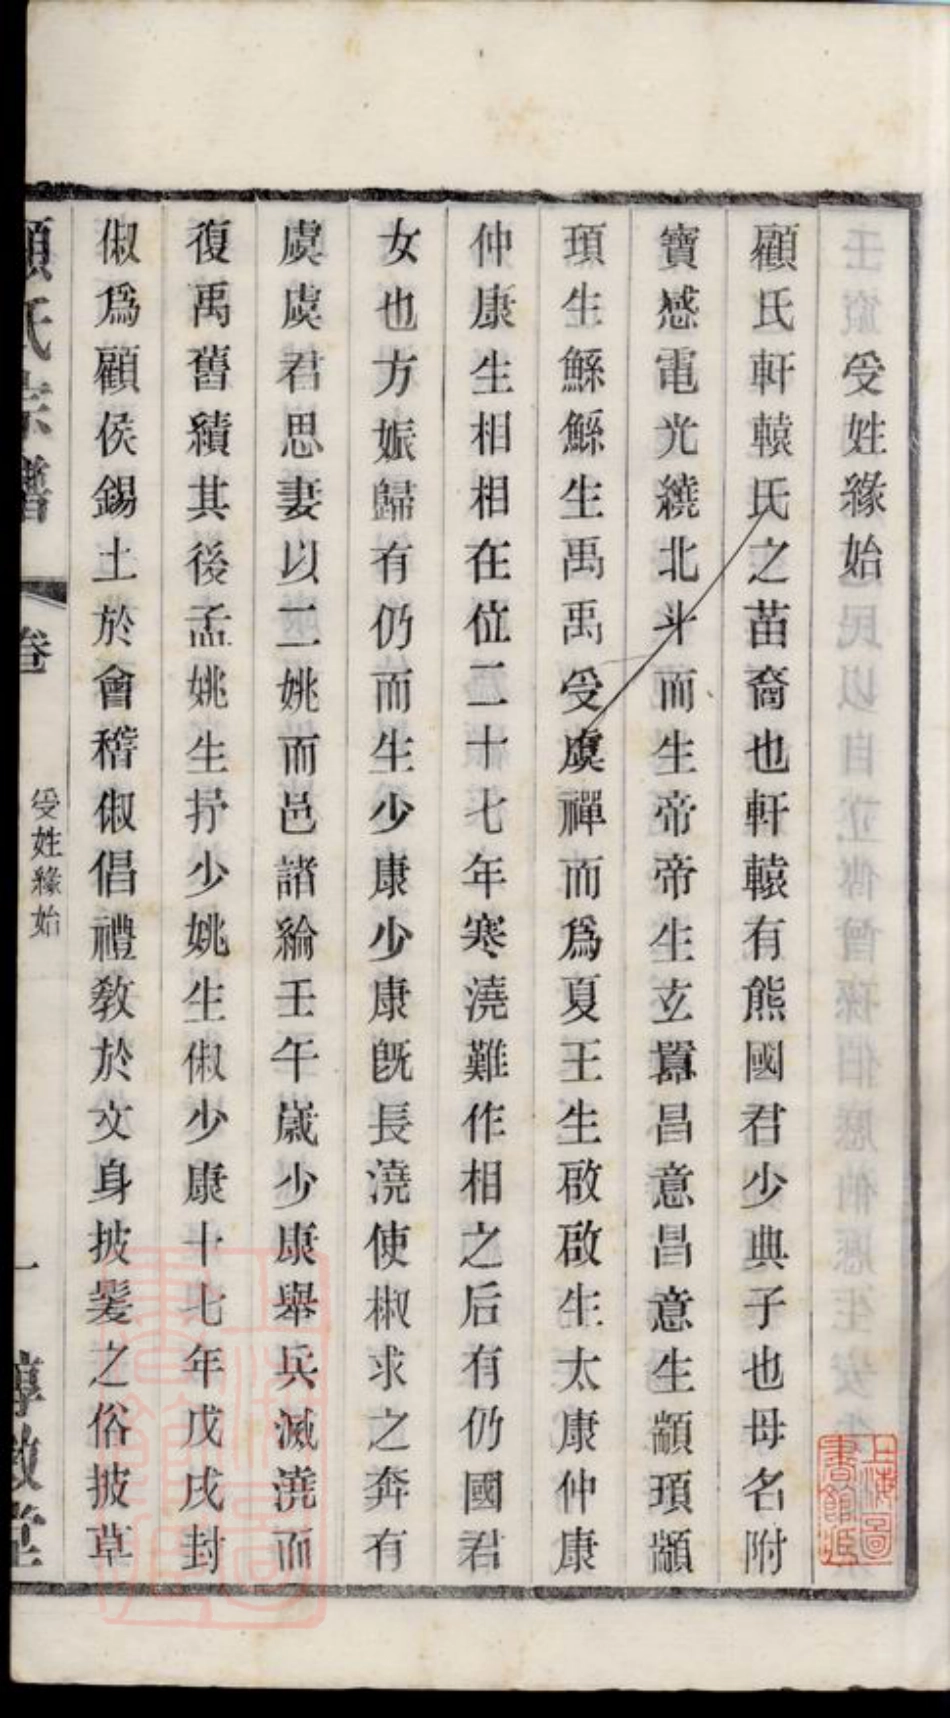 受姓緣始
顧氏軒轅氏之苗裔也軒轅有熊國君少典子也母名附
寶感電光繞北斗而生帝帝生玄囂昌意昌意生顓頊顓
頊生鯀鯀生禹禹受虞禪而爲夏王生啟啟生太康仲康
仲康生相相在位二十七年寒澆難作相之后有仍國君
女也方娠歸有仍而生少康少康旣長澆使椒求之奔有
虞虞君思妻以二姚而邑諸綸壬午歲少康舉兵滅澆而
復禹舊績其後孟姚生抒少姚生俶少康十七年戊戌封
俶爲顧侯錫土於會稽俶倡禮敎於文身披髮之俗披草
顧氏宗譜
卷
受姓緣始
一
上海圖書館藏